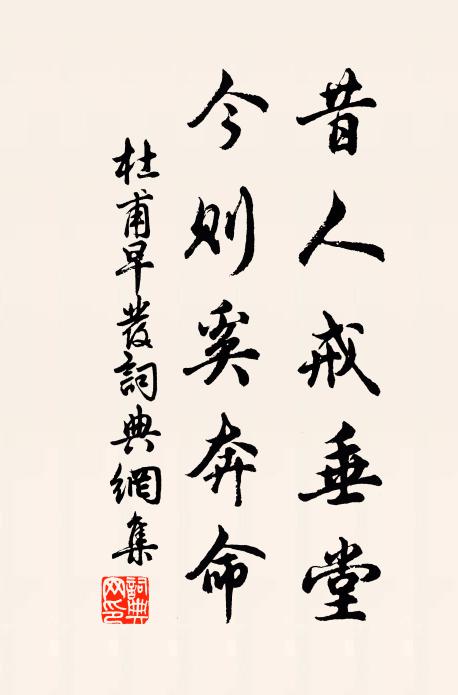 昔人戒垂堂
今则奚奔命
杜甫早發詞典網集
詞典
网印